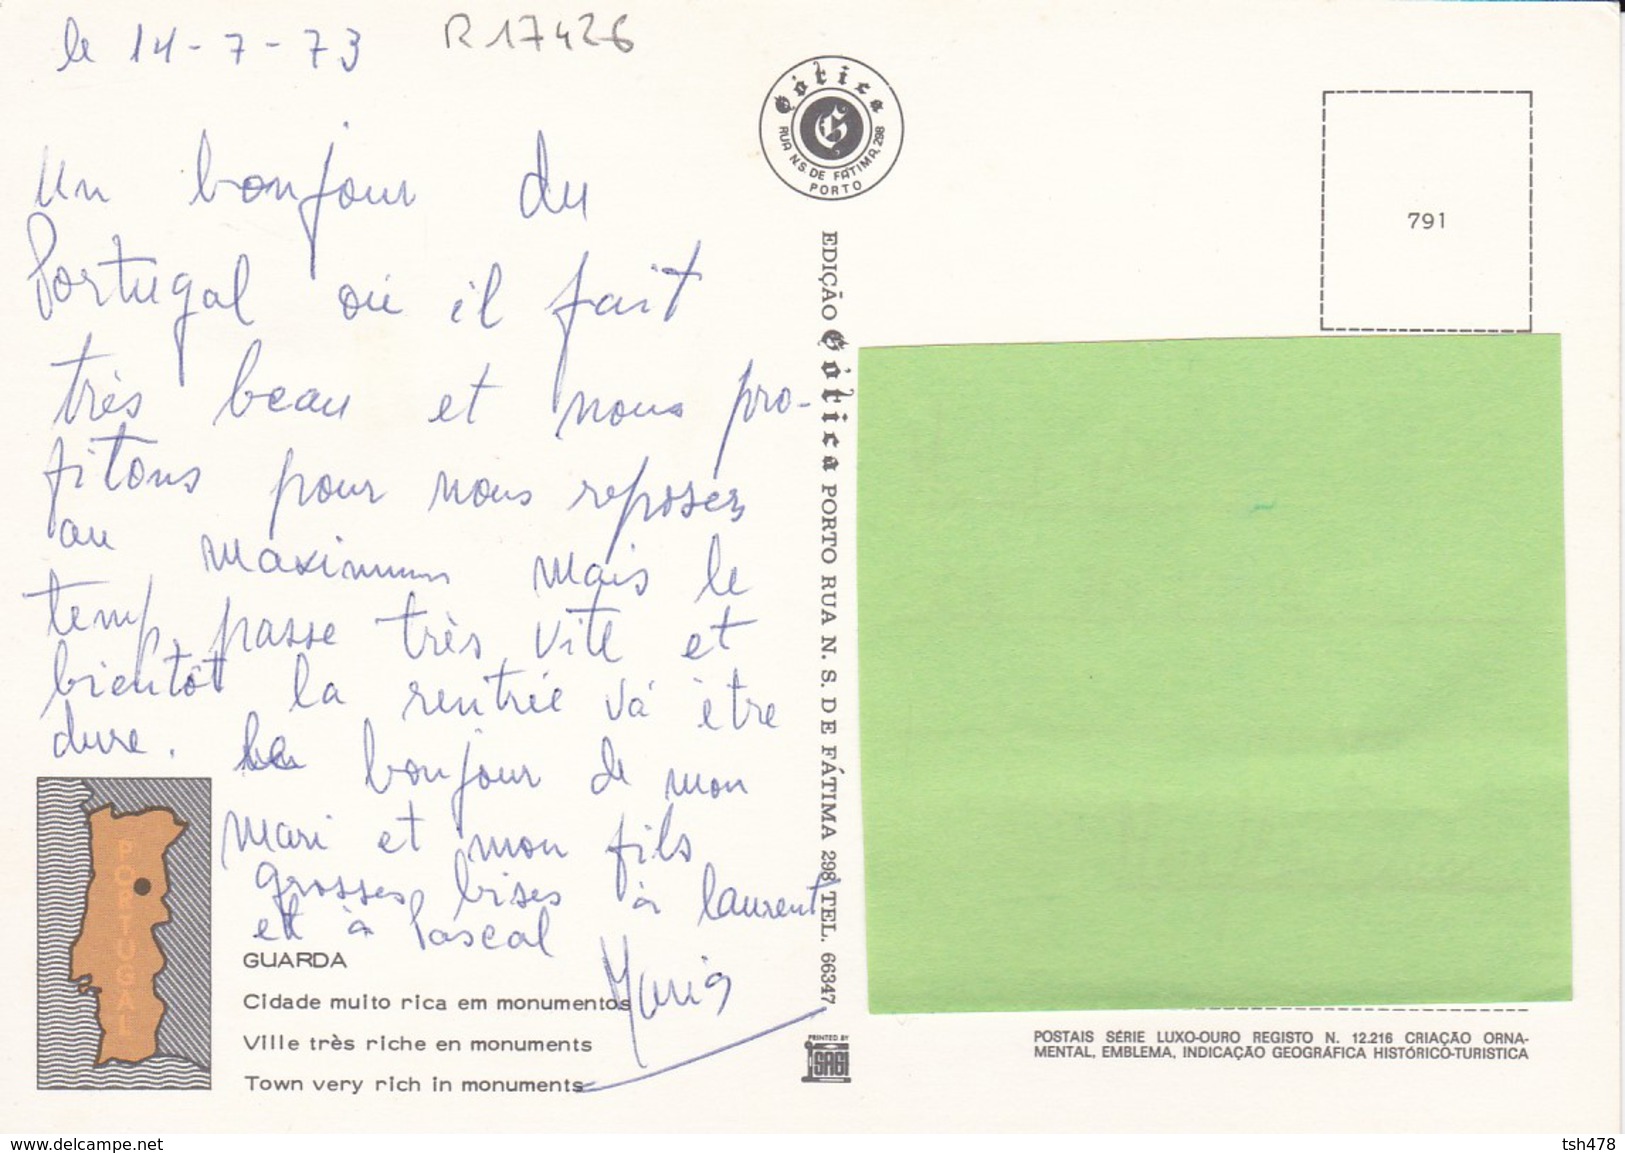 le 14-7-73
R17426
Un bonjour du
Portugal où il fait
très beau et nous pro-
fitons pour nous reposer
au maximum mais le
temps passe très vite et
bientôt la rentrée vá être
dure. bonjour de mon
mari et mon fils
grosses bises à laurent
et à Pascal
Maria
GUARDA
Cidade muito rica em monumentos
Ville très riche en monuments
Town very rich in monuments
PORTUGAL
Gótica
G
RUA N.S. DE FÁTIMA, 298
PORTO
EDIÇÃO Gótica PORTO RUA N. S. DE FÁTIMA 298 TEL. 66347
PRINTED BY
SAGI
791
POSTAIS SÉRIE LUXO-OURO REGISTO N. 12.216 CRIAÇÃO ORNA-
MENTAL, EMBLEMA, INDICAÇÃO GEOGRÁFICA HISTÓRICO-TURISTICA
www.delcampe.net
tsh478